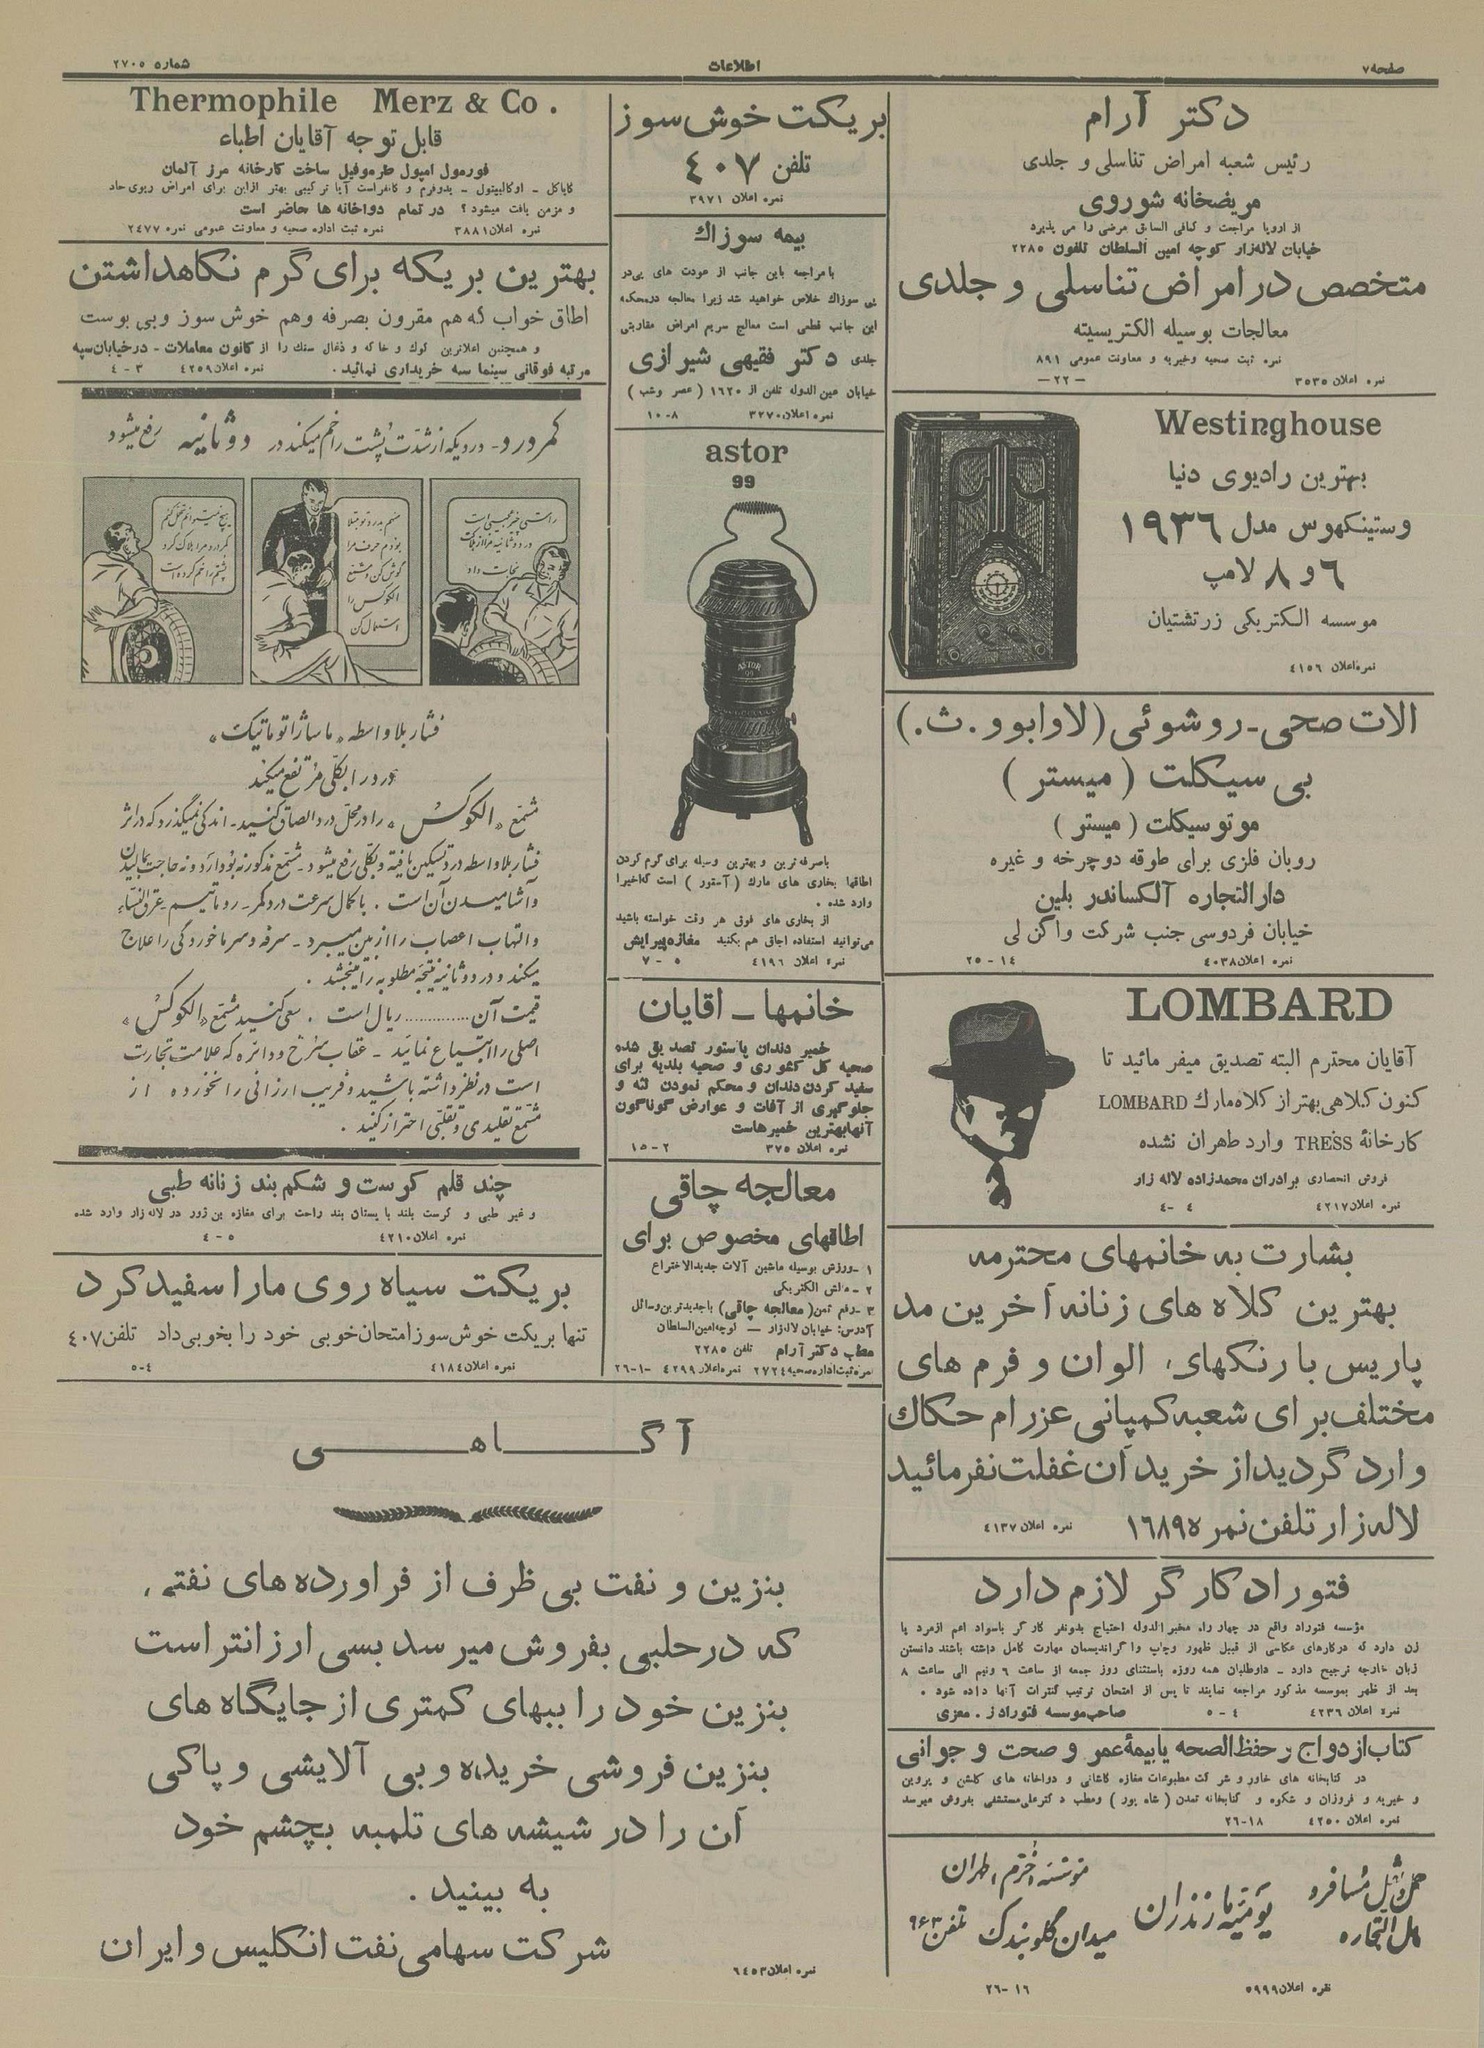 صفحه ۷
اطلاعات
شماره ۲۷۰۵
دکتر آرام
رئیس شعبه امراض تناسلی و جلدی
مریضخانه شوروی
از اروپا مراجعت و کمافی السابق مرضی را می پذیرد
خیابان لاله‌زار کوچه امین السلطان تلفون ۲۲۸۵
متخصص در امراض تناسلی و جلدی
معالجات بوسیله الکتریسیته
نمره ثبت صحیه و خیریه و معاونت عمومی ۸۹۱
نمره اعلان ۳۵۳۵
—۲۲—
Westinghouse
بهترین رادیوی دنیا
وستینکهوس مدل ۱۹۳۶
۶ و ۸ لامپ
موسسه الکتریکی زرتشتیان
نمره اعلان ۴۱۵۶
الات صحی - روشوئی (لاوابوو . ث .)
بی سیکلت ( میستر )
موتوسیکلت ( میستر )
روبان فلزی برای طوقه دوچرخه و غیره
دارالتجاره آلکساندر بلین
خیابان فردوسی جنب شرکت واگن لی
نمره اعلان ۴۰۳۸
۲۵-۱۴
LOMBARD
آقایان محترم البته تصدیق میفرمائید تا
کنون کلاهی بهتر از کلاه مارك LOMBARD
کارخانهٔ TRESS وارد طهران نشده
فروش انحصاری برادران محمدزاده لاله زار
نمره اعلان ۴۲۱۷
۴-۴
بشارت به خانمهای محترمه
بهترین کلاه های زنانه آخرین مد
پاریس با رنکهای الوان و فرم های
مختلف برای شعبه کمپانی عزرام حکاك
وارد گردید از خرید آن غفلت نفرمائید
لاله زار تلفن نمره ۱۶۸۹۵
نمره اعلان ۴۱۳۷
فتوراد کارگر لازم دارد
مؤسسه فتوراد واقع در چهار راه مخبرالدوله احتیاج بدونفر کارگر باسواد اعم ازمرد یا
زن دارد که درکارهای عکاسی از قبیل ظهور وچاپ واگراندیسمان مهارت کامل داشته باشند دانستن
زبان خارجه ترجیح دارد - داوطلبان همه روزه باستثنای روز جمعه از ساعت ۶ ونیم الی ساعت ۸
بعد از ظهر بموسسه مذکور مراجعه نمایند تا پس از امتحان ترتیب کنترات آنها داده شود .
صاحب موسسه فتوراد ز . معزی
نمره اعلان ۴۲۳۶
۵-۴
کتاب ازدواج و حفظ الصحه یا بیمهٔ عمر و صحت و جوانی
در کتابخانه های خاور و شرکت مطبوعات مغازه کاشانی و دواخانه های کلشن و پروین
و خیریه و فروزان و شکوه و کتابخانه تمدن ( شاه پور ) ومطب دکتر علی مستشفی بفروش میرسد
نمره اعلان ۴۲۵۰
۲۶-۱۸
مازندران
میدان گلوبندک
تلفن ۹۶۳
نمره اعلان ۵۹۹۹
۲۶-۱۶
بریکت خوش سوز
تلفن ۴۰۷
نمره اعلان ۳۹۷۱
بیمه سوزاك
با مراجعه باین جانب از عودت های پی در
پی سوزاك خلاص خواهید شد زیرا معالجه درمحکمه
این جانب قطعی است معالج سریع امراض مقاربتی
جلدی دکتر فقیهی شیرازی
خیابان عین الدوله تلفن از ۱۶۲۰ ( عصر وشب )
نمره اعلان ۳۲۷۰
۱۰-۸
astor
99
ASTOR
99
باصرفه ترین و بهترین وسیله برای گرم کردن
اطاقها بخاری های مارك ( آستور ) است که اخیرا
وارد شده .
از بخاری های فوق هر وقت خواسته باشید
می‌توانید استفاده اجاق هم بکنید مغازه پیرایش
نمره اعلان ۴۱۹۶
۷-۵
خانمها - اقایان
خمیر دندان پاستور تصدیق شده
صحیه کل کشوری و صحیه بلدیه برای
سفید کردن دندان و محکم نمودن لثه و
جلوگیری از آفات و عوارض گوناگون
آنها بهترین خمیرهاست
نمره اعلان ۳۷۵
۱۵-۲
معالجه چاقی
اطاقهای مخصوص برای
۱ - ورزش بوسیله ماشین آلات جدیدالاختراع
۲ - ماش الکتریکی
۳ - رفع سمن ( معالجه چاقی ) با جدیدترین وسائل
آدرس: خیابان لاله‌زار — کوچه امین السلطان
مطب دکتر آرام تلفن ۲۲۸۵
نمره ثبت اداره صحیه ۲۷۲۴ نمره اعلان ۴۲۹۹ ۲۶-۱۰
Thermophile Merz & Co .
قابل توجه آقایان اطباء
فورمول امپول طرموفیل ساخت کارخانه مرز آلمان
کایاکل - اوکالیپتول - یدوفرم و کانفراست آیا ترکیبی بهتر ازاین برای امراض ریوی حاد
و مزمن یافت میشود ؟ در تمام دواخانه ها حاضر است
نمره اعلان ۳۸۸۱ نمره ثبت اداره صحیه و معاونت عمومی نمره ۲۴۷۷
بهترین بریکه برای گرم نکاهداشتن
اطاق خواب که هم مقرون بصرفه وهم خوش سوز وبی بوست
و همچنین اعلاترین کوك و خاکه و ذغال سنك را از کانون معاملات - در خیابان سپه
مرتبه فوقانی سینما سپه خریداری نمائید . نمره اعلان ۴۲۵۹ ۴-۳
کمر درد - دردیکه از شدت پشت را خم میکند در دو ثانیه رفع میشود
هیچ نمیتوانم تحمل کنم
کمردرد مرا هلاک کرد
پشتم را خم کرده است
منهم بدرد تو مبتلا
بودم حرف مرا
گوش کن و مشمع
الکوکس را
استعمال کن
راستی چیز عجیبی است
در دو ثانیه مرا از هلاکت
نجات داد
فشار بلاواسطه «ماساژ اتوماتیک»
درد را بکلی مرتفع میکند
مشمع «الکوکس» را در محل درد الصاق کنید - اندکی نمیگذرد که در اثر
فشار بلاواسطه درد تسکین یافته و بکلی رفع میشود - مشمع مذکور نه بو دارد و نه حاجت بمالیدن
و آشامیدن آن است . با کمال سرعت درد کمر - روماتیسم - عرق النساء
والتهاب اعصاب را از بین میبرد - سرفه و سرماخوردگی را علاج
میکند و در دو ثانیه نتیجه مطلوبه را میبخشد .
قیمت آن ............ ریال است . سعی کنید مشمع «الکوکس»
اصلی را ابتیاع نمائید - عقاب سرخ و دائره که علامت تجارت
است در نظر داشته باشید و فریب ارزانی را نخورده از
مشمع تقلیدی و تقلبی احتراز کنید .
چند قلم کرست و شکم بند زنانه طبی
و غیر طبی و کرست بلند با پستان بند راحت برای مغازه بن ژور در لاله زار وارد شده
نمره اعلان ۴۲۱۰
۴-۵
بریکت سیاه روی مارا سفید کرد
تنها بریکت خوش سوز امتحان خوبی خود را بخوبی داد تلفن ۴۰۷
نمره اعلان ۴۱۸۴
۵-۴
آگاهی
بنزین و نفت بی ظرف از فراورده های نفتی
که در حلبی بفروش میرسد بسی ارزانتر است
بنزین خود را ببهای کمتری از جایگاه های
بنزین فروشی خریده و بی آلایشی و پاکی
آن را در شیشه های تلمبه بچشم خود
به بینید .
شرکت سهامی نفت انکلیس و ایران
نمره اعلان ۶۴۵۳